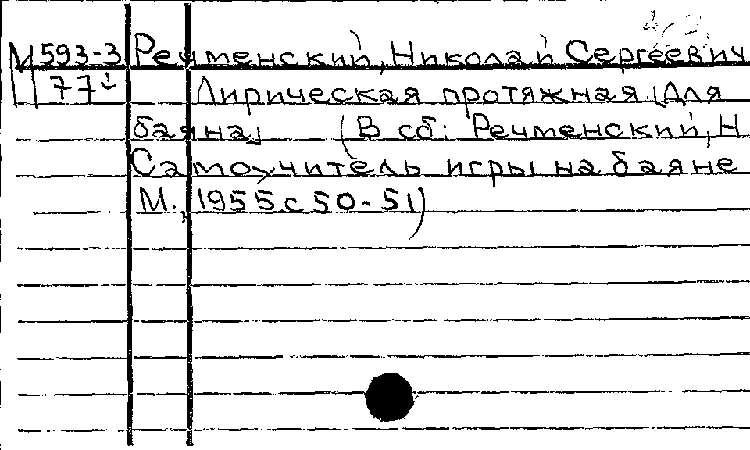 М 593-3 Речменский, Николай Сергеевич
77 Лирическая протяжная [Для
баяна] (В сб.: Речменский, Н
Самоучитель игры на баяне
М., 1955 с 50-51)